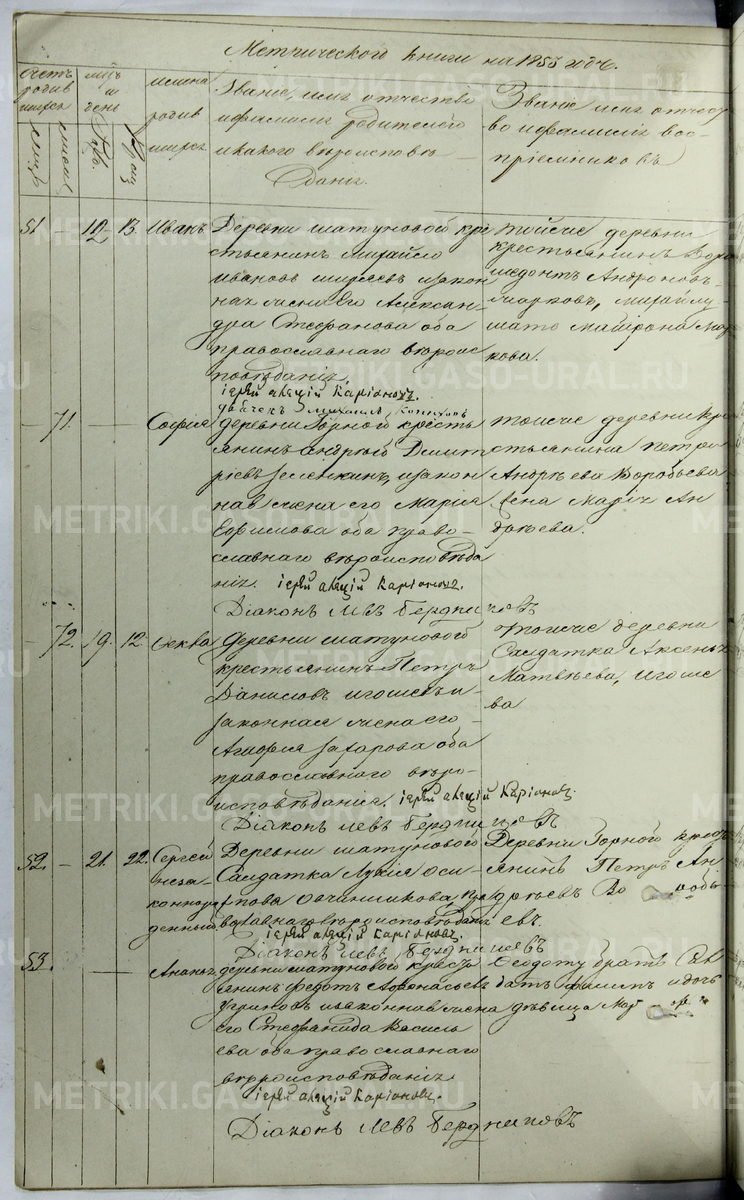 Метрической книги на 1855 годъ.
Счетъ родившихся
мужс. женс.
Мѣсяцъ и день
Рожд. Крещ.
Имена родившихся
Званiе, имя отчество
и фамилiя родителей
и какого вѣроисповѣ-
данiя.
Званiе имя отчест-
во и фамилiя вос-
прiемниковъ
51 - 12 13. Иванъ
Деревни Шатуновой кре
стьянинъ Михайло
Ивановъ Ширяевъ и закон
ная жена его Алексан-
дра Стефанова оба
православнаго вѣроис
повѣданiя.
Iерей Алексiй Карiоновъ.
Тойже деревни
крестьянинъ
Андроновъ
Марковъ,
Матрона Мар
кова.
- 71. - - София
деревни Горного кресть
янинъ Андрей Дмит
рiевъ Зеленкинъ, и закон
ная жена его Марiя
Ефимова оба право-
славнаго вѣроисповѣда
нiя. Iерей Алексiй Карiоновъ.
Дiаконъ Левъ Бердниковъ
Тойже деревни кре
стьянина Петра
Андрѣева Воробьева
жена Марiя Ан
дрѣева.
- 72. 19. 12. Фекла
Деревни Шатуновой
крестьянинъ Петръ
Даниловъ Игошевъ и
законная жена его
Агафия Захарова оба
православнаго вѣро-
исповѣданiя. Iерей Алексiй Карiоновъ.
Дiаконъ Левъ Бердниковъ
Тойже деревни
Салдатка Аксенья
Матвѣева, Игоше
ва
52. - 21. 22. Сергей
незаконно рожденный
Деревни Шатуновой
Салдатка Лукiя Оси-
пова Овчинникова, пра
вославнаго вѣроисповѣданiя
Iерей Алексiй Карiоновъ.
Дiаконъ Левъ Бердниковъ
Деревни Горной крест
янинъ Петръ Ан
дрѣевъ Во робь
евъ.
53. - - Ананья
деревни Шатуновой кресть
янинъ Федотъ Афонасьевъ
Угриновъ и законная жена
его Стефанида Василь
ева оба православнаго
вѣроисповѣданiя
Iерей Алексiй Карiоновъ.
Дiаконъ Левъ Бердниковъ
Феодоту братъ
и дочь
дѣвица
METRIKI.GASO-URAL.RU